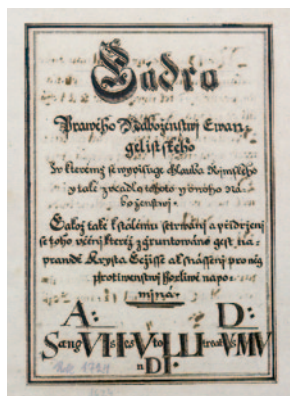 Jádro
Prawého Náboženstwj Ewan-
gelistského
W kterémž se wypisuge Chlauba Ržjmského
y také zrcadlo tohoto y onoho Ná-
boženstwj.
Jakož také k stálému setrwánj a přidrženj
se toho včenj kteréž zgruntowáno gest na
prawdě Krysta Gežjsse a k snássenj pro něg
protiwenstwj horliwě napo-
mjná.
A: D: